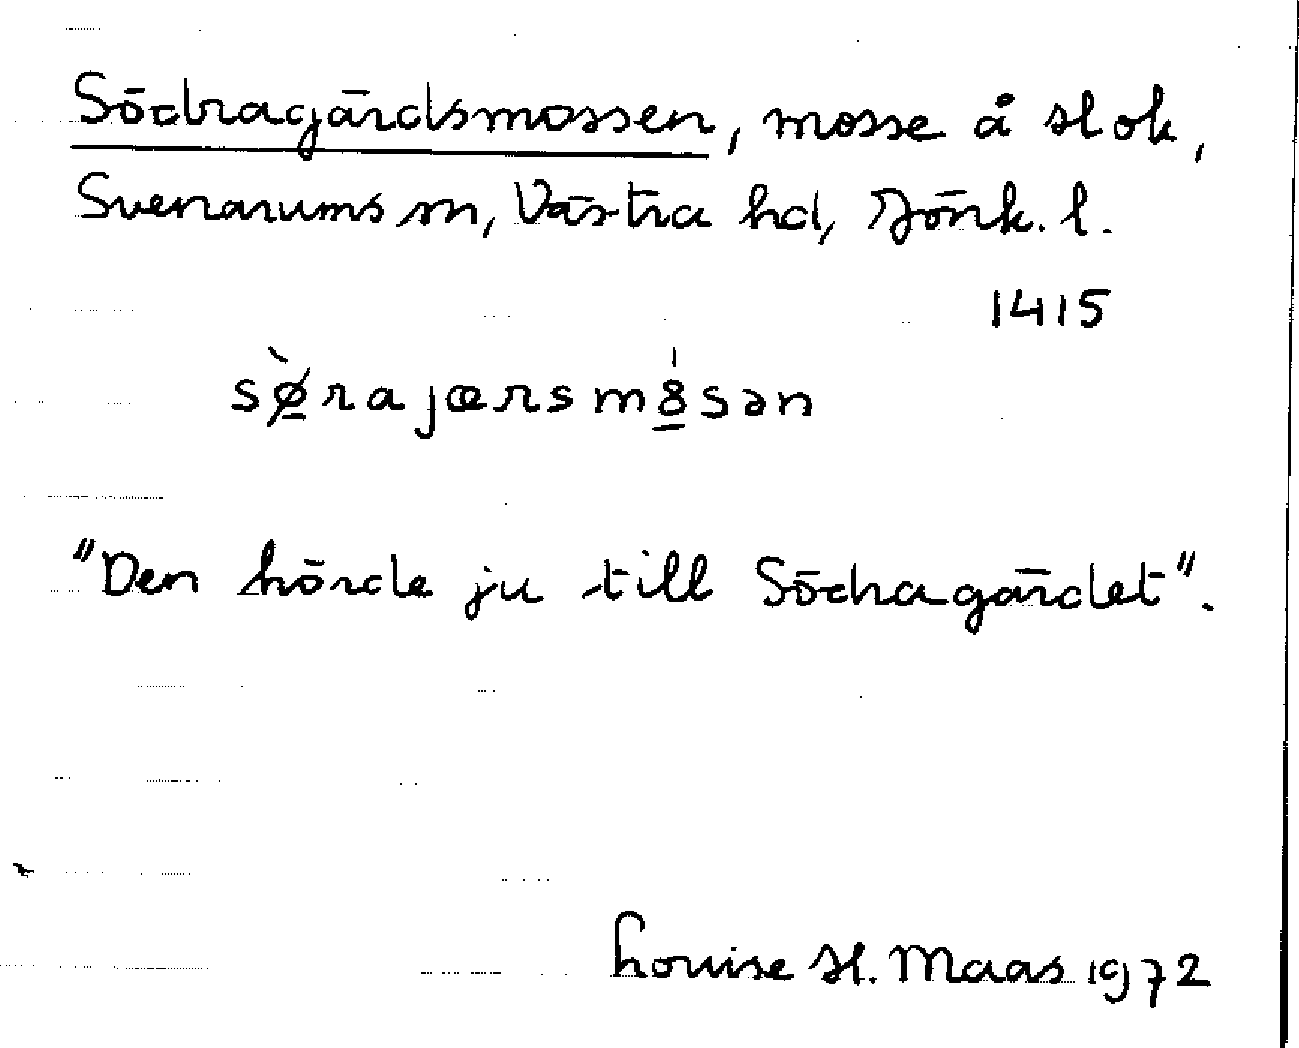 Södragärdsmossen, mosse å stok,
Svenarums sn, Västra hd, Jönk. l.
1415
sø̀rajærsm8sən
"Den hörde ju till Södragärdet".
Louise H. Maas 1972